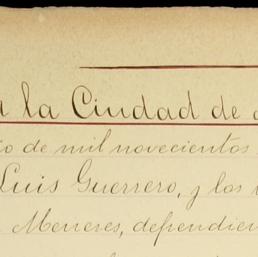 la Ciudad de
de mil novecientos
Luis Guerrero, y los
Meneses, dependien